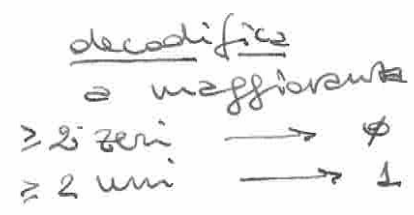 decodifica
a maggioranza
≥ 2 zeri → 0
≥ 2 uni → 1